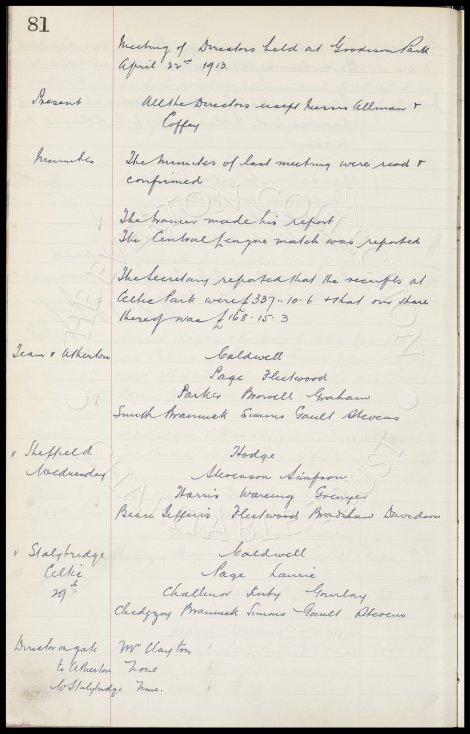 81
Meeting of Directors held at Goodison Park
April 22nd 1913.
Present All the Directors except Messrs Allman &
Coffey
Minutes The Minutes of last meeting were read &
confirmed
The trainer made his report
The Central League match was reported
The Secretary reported that the receipts at
Celtic Park were £337..10.6 & that our share
thereof was £168.15.3
Team v Atherton Caldwell
Page Fleetwood
Parker Browell Graham
Smith Brannick Simms Gault Stevens
v Sheffield Hodge
Wednesday Stevenson Simpson
Harris Wareing Grenyer
Beare Jefferis Fleetwood Bradshaw Davidson
v Stalybridge Caldwell
Celtic Page Laurie
29th Challinor Kirby Gourlay
Chedgzoy Brannick Simms Gault Stevens
Director on gate Mr Clayton
to Atherton None
to Stalybridge None.
THE EVERTON COLLECTION
CHARITABLE TRUST